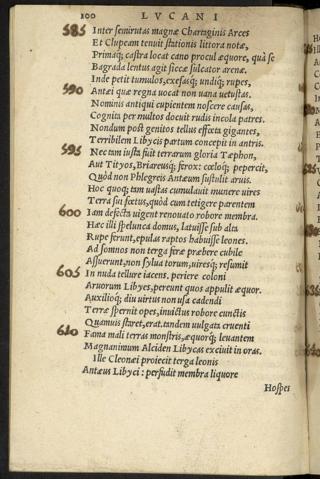 100 LVCANI
585 Inter semirutas magnæ Charaginis Arces
Et Clupeam tenuit stationis littora notæ,
Primaq; castra locat cano procul æquore, quà se
Bagrada lentus agit siccæ sulcator arenæ.
Inde petit tumulos, exesasq; undiq; rupes,
590 Antæi quæ regna uocat non uana uetustas.
Nominis antiqui cupientem noscere causas,
Cognita per multos docuit rudis incola patres.
Nondum post genitos tellus effœta gigantes,
Terribilem Libycis partum concepit in antris.
595 Nec tam iusta fuit terrarum gloria Tæphon,
Aut Tityos, Briareusq; ferox: cœloq; pepercit,
Quòd non Phlegreis Antæum sustulit aruis.
Hoc quoq; tam uastas cumulauit munere uires
Terra sui fœtus, quòd cum tetigere parentem
600 Iam defecta uigent renouato robore membra.
Hæc illi spelunca domus, latuisse sub alta
Rupe ferunt, epulas raptos habuisse leones.
Ad somnos non terga feræ præbere cubile
Assuerunt, non sylua torum, uiresq; resumit
605 In nuda tellure iacens. periere coloni
Aruorum Libyes, pereunt quos appulit æquor.
Auxilioq; diu uirtus non usa cadendi
Terræ spernit opes, inuictus robore cunctis
Quamuis staret, erat. tandem uulgata cruenti
610 Fama mali terras monstris, æquorq; leuantem
Magnanimum Alciden Libycas exciuit in oras.
Ille Cleonæi proiecit terga leonis
Antæus Libyci: perfudit membra liquore
Hospes